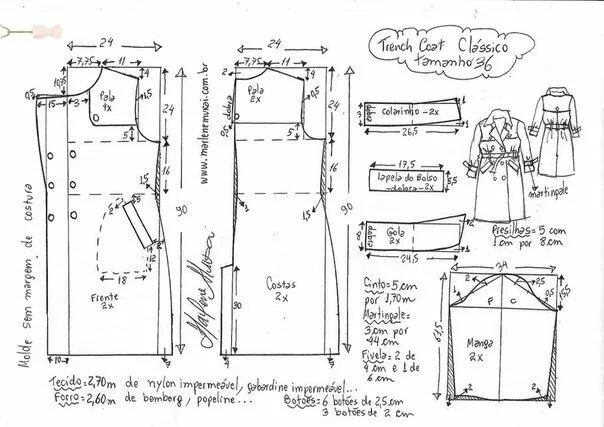 Trench Coat Clássico
tamanho 36
24
7,75
11
10,75
4
0,5
15
3
Pala
4x
1,5
24
5
16
1,5
90
2
2
12
18
Frente
2x
10
7
Molde sem margem de costura
www.marlenemukai.com.br
24
7,75
11
2
4
Pala
2x
0,5
dobra
24
5
16
1,5
90
Costas
2x
30
4
7
Marlene Mukai
3
dobra
Colarinho - 2x
1
1
26,5
17,5
Lapela do Bolso
dobra - 2x
5,5
8
dobra
Gola
2x
2
1
24,5
martingale
Presilhas = 5 com
1 cm por 8 cm
Cinto = 5 cm
por 1,70m
Martingale =
3 cm por
44 cm
Fivela = 2 de
4 cm e 1 de
6 cm
34
2
2,5
0,5
P
C
61,5
Manga
2x
2
2
Tecido = 2,70m de nylon impermeável, gabardine impermeável...
Forro = 2,60m de bemberg, popeline...
Botões = 6 botões de 2,5cm
3 botões de 2 cm